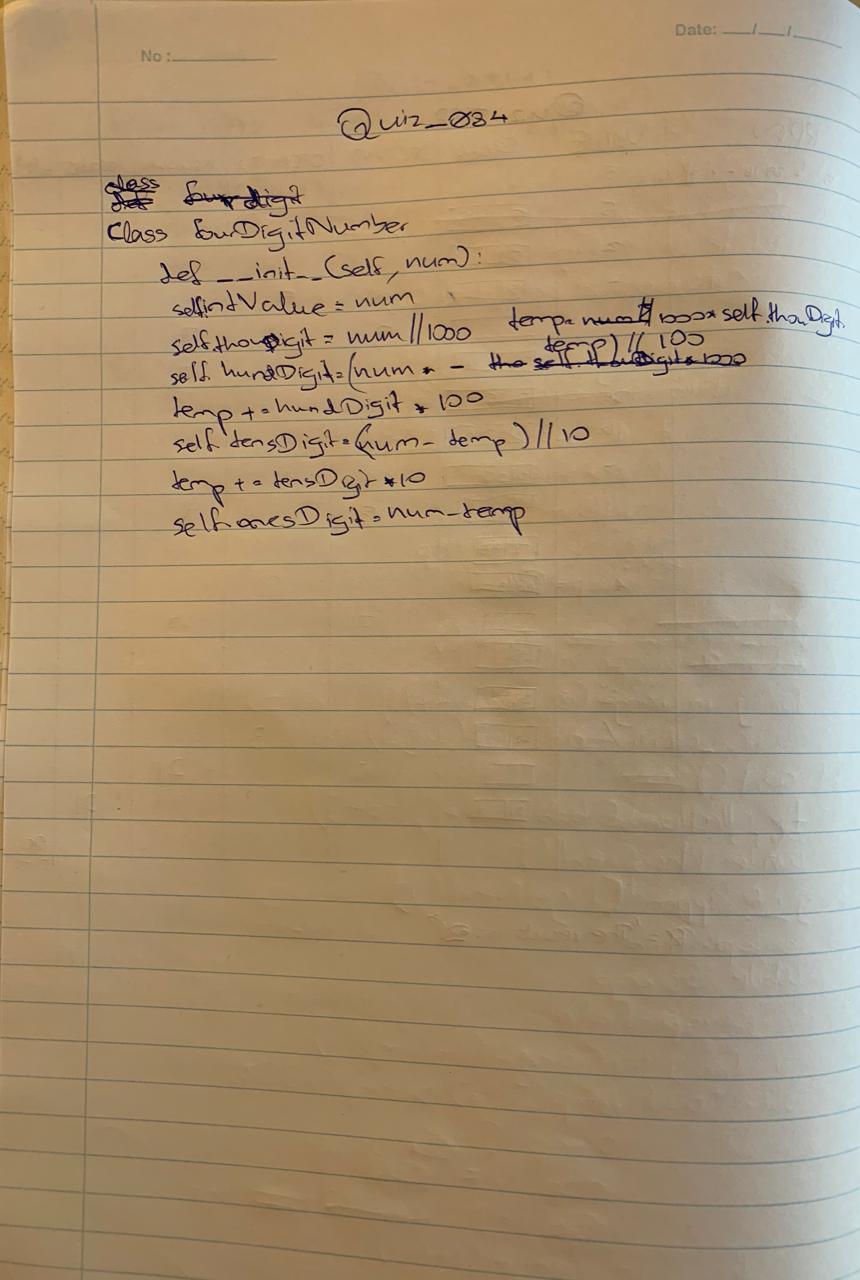 Date: __/__/__
No :
Quiz_034
class
def four digit
Class fourDigitNumber
def __init__(self, num):
self.intValue = num
self.thouDigit = num//1000 temp = num 1000* self.thouDigit
self.hundDigit=(num - temp)//100
the self.thouDigit*1000
temp += hundDigit * 100
self.tensDigit=(num - temp)//10
temp += tensDigit *10
self.onesDigit = num-temp